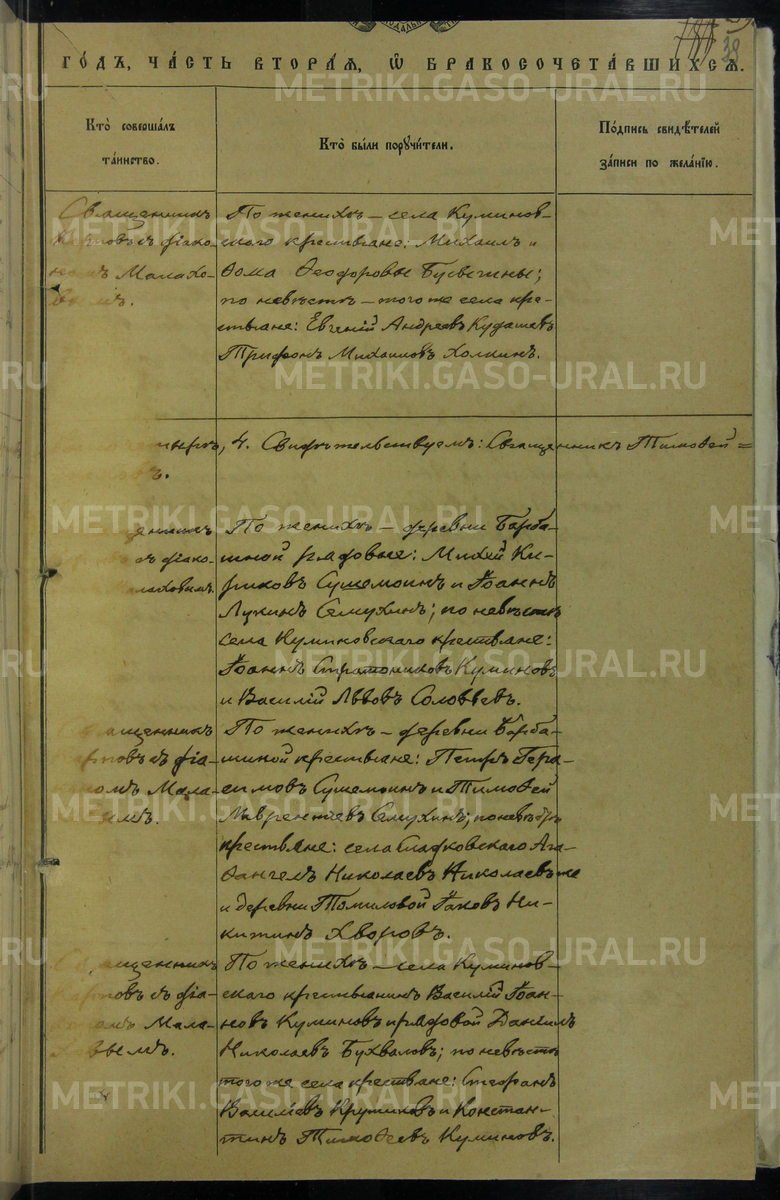 38
ГО́ДЪ, ЧА́СТЬ ВТОРА́Я, Ѡ҆ БРАКОСОЧЕТА́ВШИХСЯ.
Кто̀ соверша́лъ
та́инство.
Кто̀ бы́ли порꙋчи́тели.
По́дпись свидѣ́телей
за́писи по жела́нїю.
Священникъ
съ діако-
номъ Малахо-
вымъ.
По женихѣ – села Куминов-
скаго крестьяне: Михаилъ и
Ѳома Ѳеодоровы Бусыгины;
по невѣстѣ – того же села кре-
стьяне: Евгеній Андреевъ Кудашевъ
Трифонъ Михаиловъ Холкинъ.
4. Свидѣтельствуемъ: Священникъ Тимоѳей =
По женихѣ – деревни Барба-
шиной рядовые: Михей Ки-
риковъ Сушемоинъ и Іоаннъ
Лукинъ Семухинъ; по невѣстѣ
села Куминовскаго крестьяне:
Іоаннъ Стратониковъ Куминовъ
и Василій Львовъ Соловьевъ.
съ діако-
Малаховымъ.
По женихѣ – деревни Барба-
шиной крестьяне: Петръ Гера-
симовъ Сушемоинъ и Тимоѳей
Лаврентьевъ Семухинъ; по невѣстѣ
крестьяне: села Сладковскаго Ага-
ѳангелъ Николаевъ Николаевъ же
и деревни Томиловой Іаковъ Ни-
китинъ Хворовъ.
Священникъ
съ діа-
Мала-
По женихѣ – села Куминов-
скаго крестьянинъ Василій Іоан-
новъ Куминовъ и рядовой Даніилъ
Николаевъ Бухваловъ; по невѣстѣ
того же села крестьяне: Стефанъ
Василіевъ Крутиковъ и Констан-
тинъ Тимоѳеевъ Куминовъ.
Священникъ
съ діа-
Мала-
METRIKI.GASO-URAL.RU